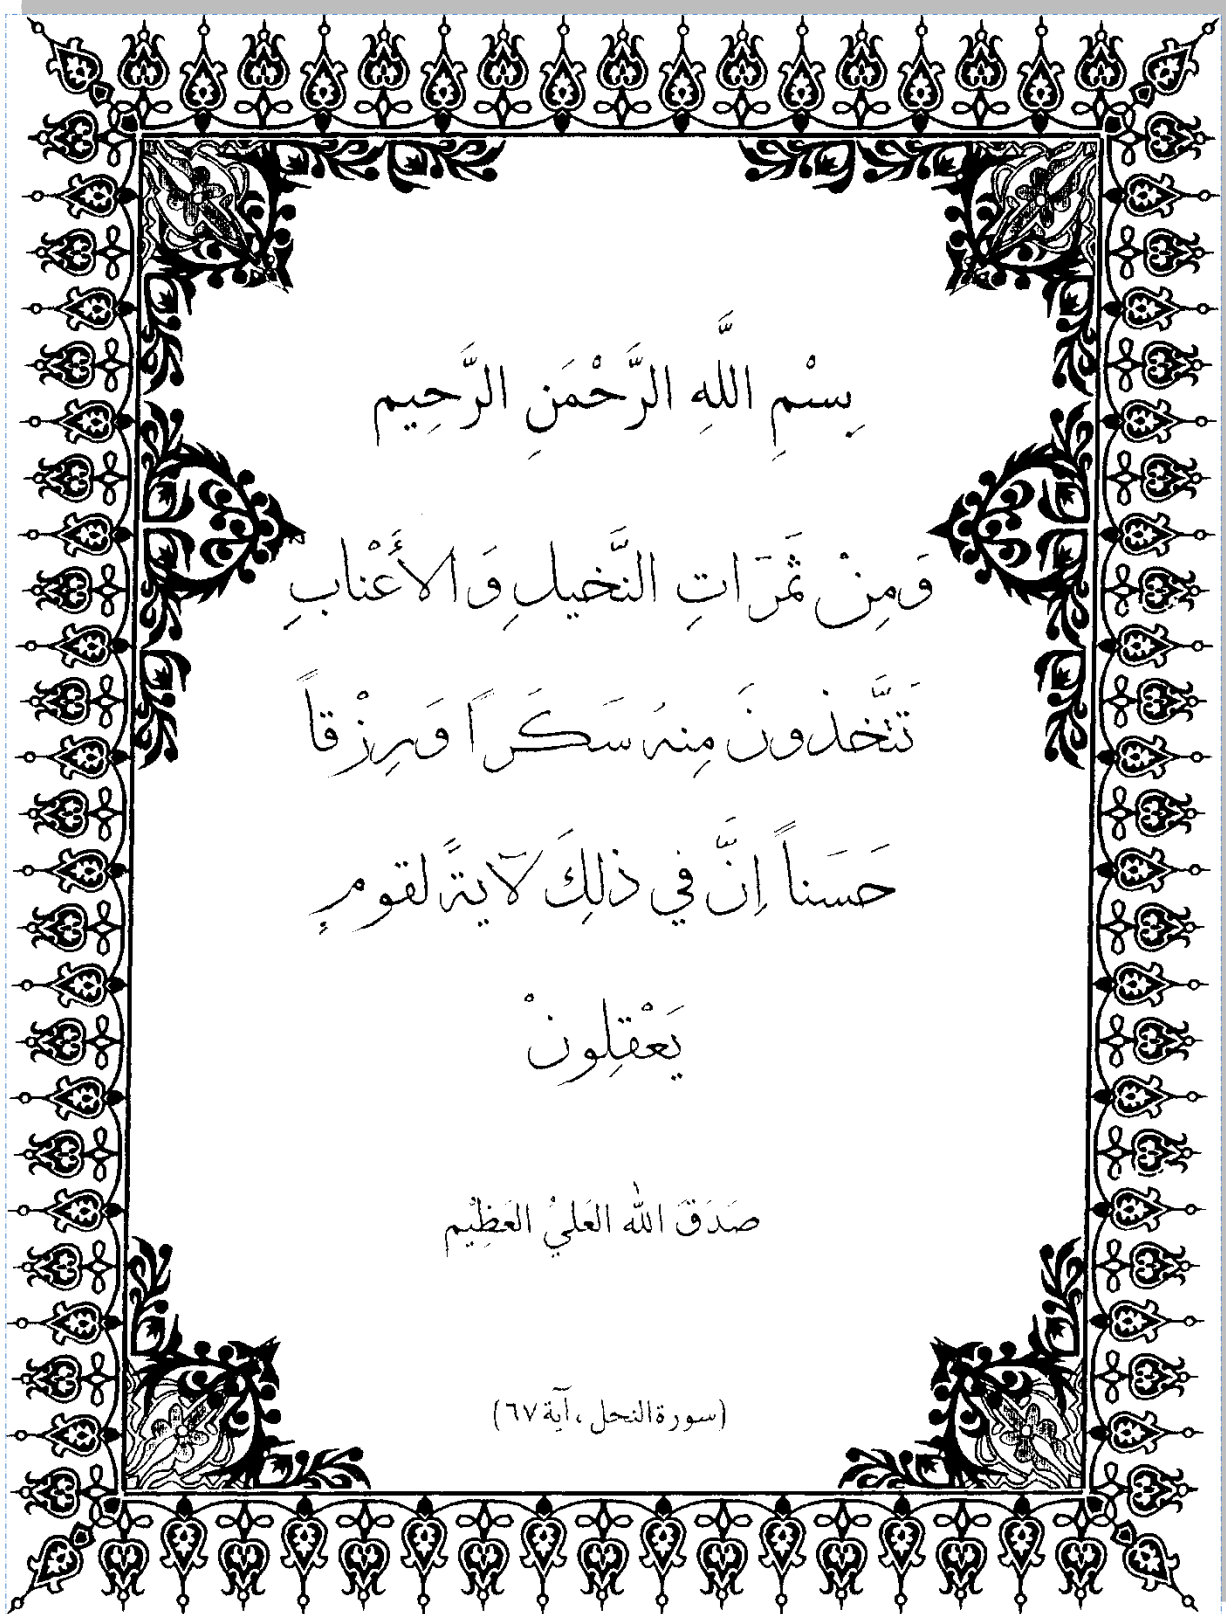 بِسْمِ اللَّهِ الرَّحْمَنِ الرَّحِيم
وَمِنْ ثَمَرَاتِ النَّخيلِ وَالأَعْنابِ
تَتَّخذونَ مِنهُ سَكَراً وَرِزْقاً
حَسَناً إِنَّ في ذلِكَ لآيةً لقومٍ
يَعْقِلونْ
صَدَقَ اللّٰه العَليُ العَظِيْم
(سورة النحل ، آية ٦٧)